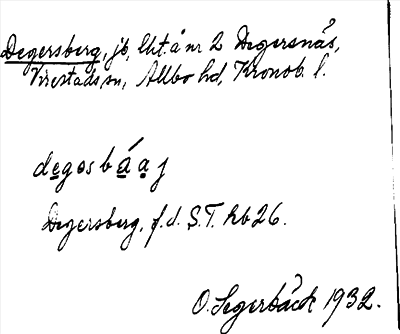 Degersberg, jb, lht. å nr 2 Degersnäs,
Virestads sn, Allbo hd, Kronob. l.
degǝsbá̱a̱j
Degersberg, f.d. S.T. hb 26.
O. Segerbäck 1932.